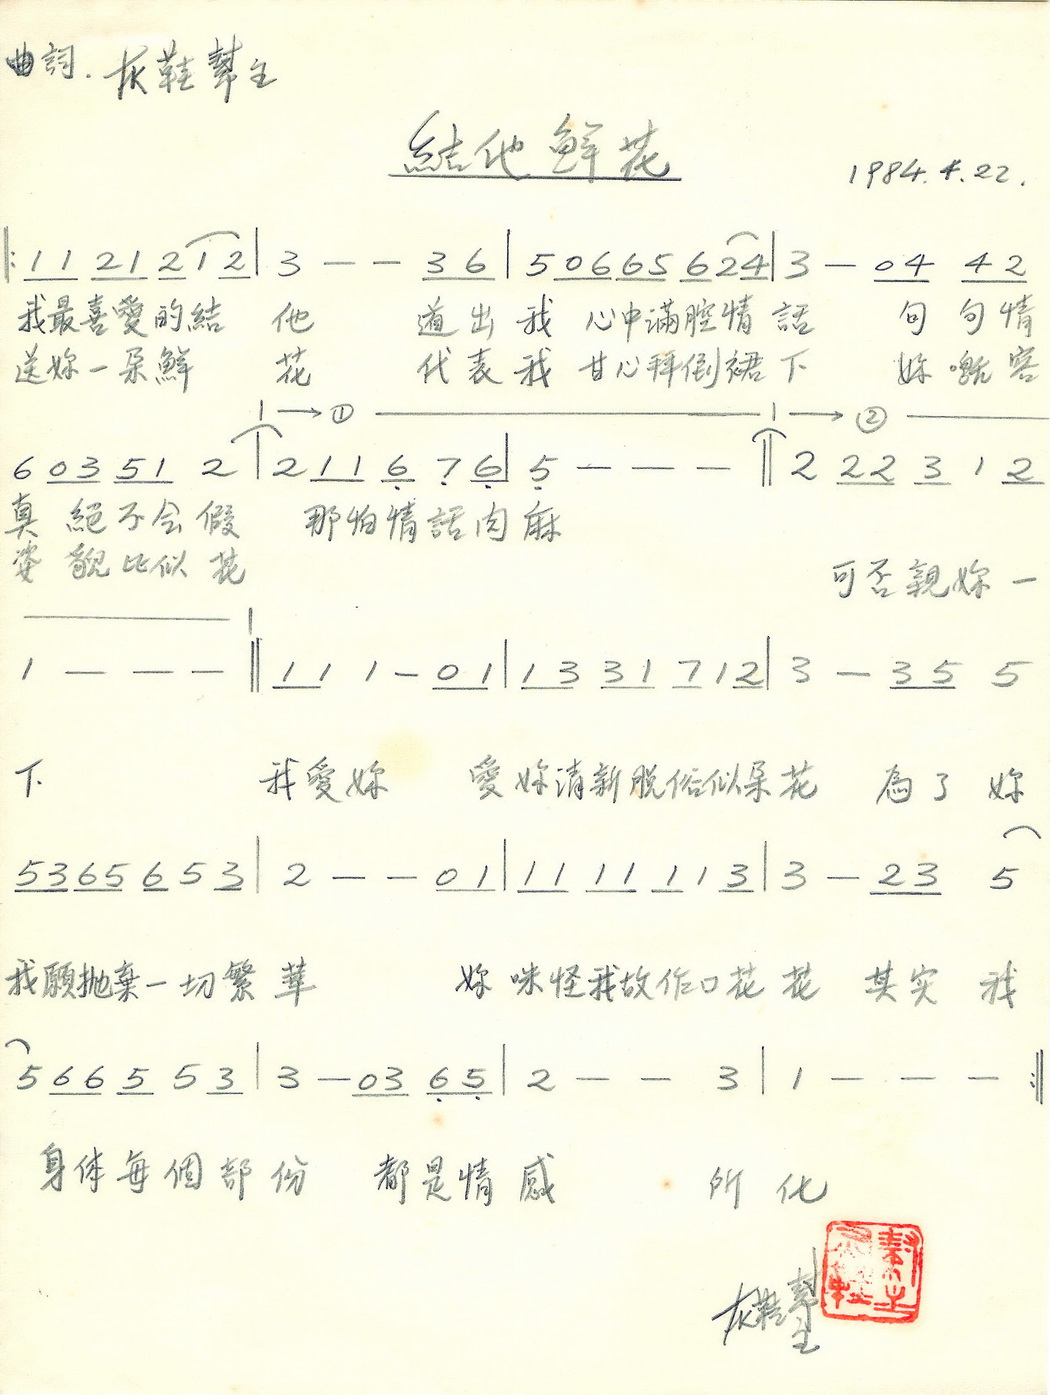 曲詞. 灰鞋幫主
結他鮮花
1984.4.22.
‖: 1 1 2 1 2 1 2 | 3 — — 3 6 | 5 0 6 6 6 5 6 2 4 | 3 — 0 4 4 2
我最喜愛的結他 道出我心中滿腔情話 句句情
送妳一朵鮮花 代表我甘心拜倒裙下 妳嘅容
1 → ① 1 → ②
6 0 3 5 1 2 | 2 1 1 6 7 6 | 5 — — — ‖ 2 2 2 3 1 2
真 絕不会假 那怕情話肉麻
姿 貌比似花
可否親妳一
1 — — — ‖ 1 1 1 — 0 1 | 1 3 3 1 7 1 2 | 3 — 3 5 5
下 我愛妳 愛妳清新脫俗似朵花 為了妳
5 3 6 5 6 5 3 | 2 — — 0 1 | 1 1 1 1 1 1 3 | 3 — 2 3 5
我願拋棄一切繁華 妳咪怪我故作口花花 其实我
5 6 6 5 5 3 | 3 — 0 3 6 5 | 2 — — 3 | 1 — — — :‖
身体每個部份 都是情感 所化
灰鞋幫主